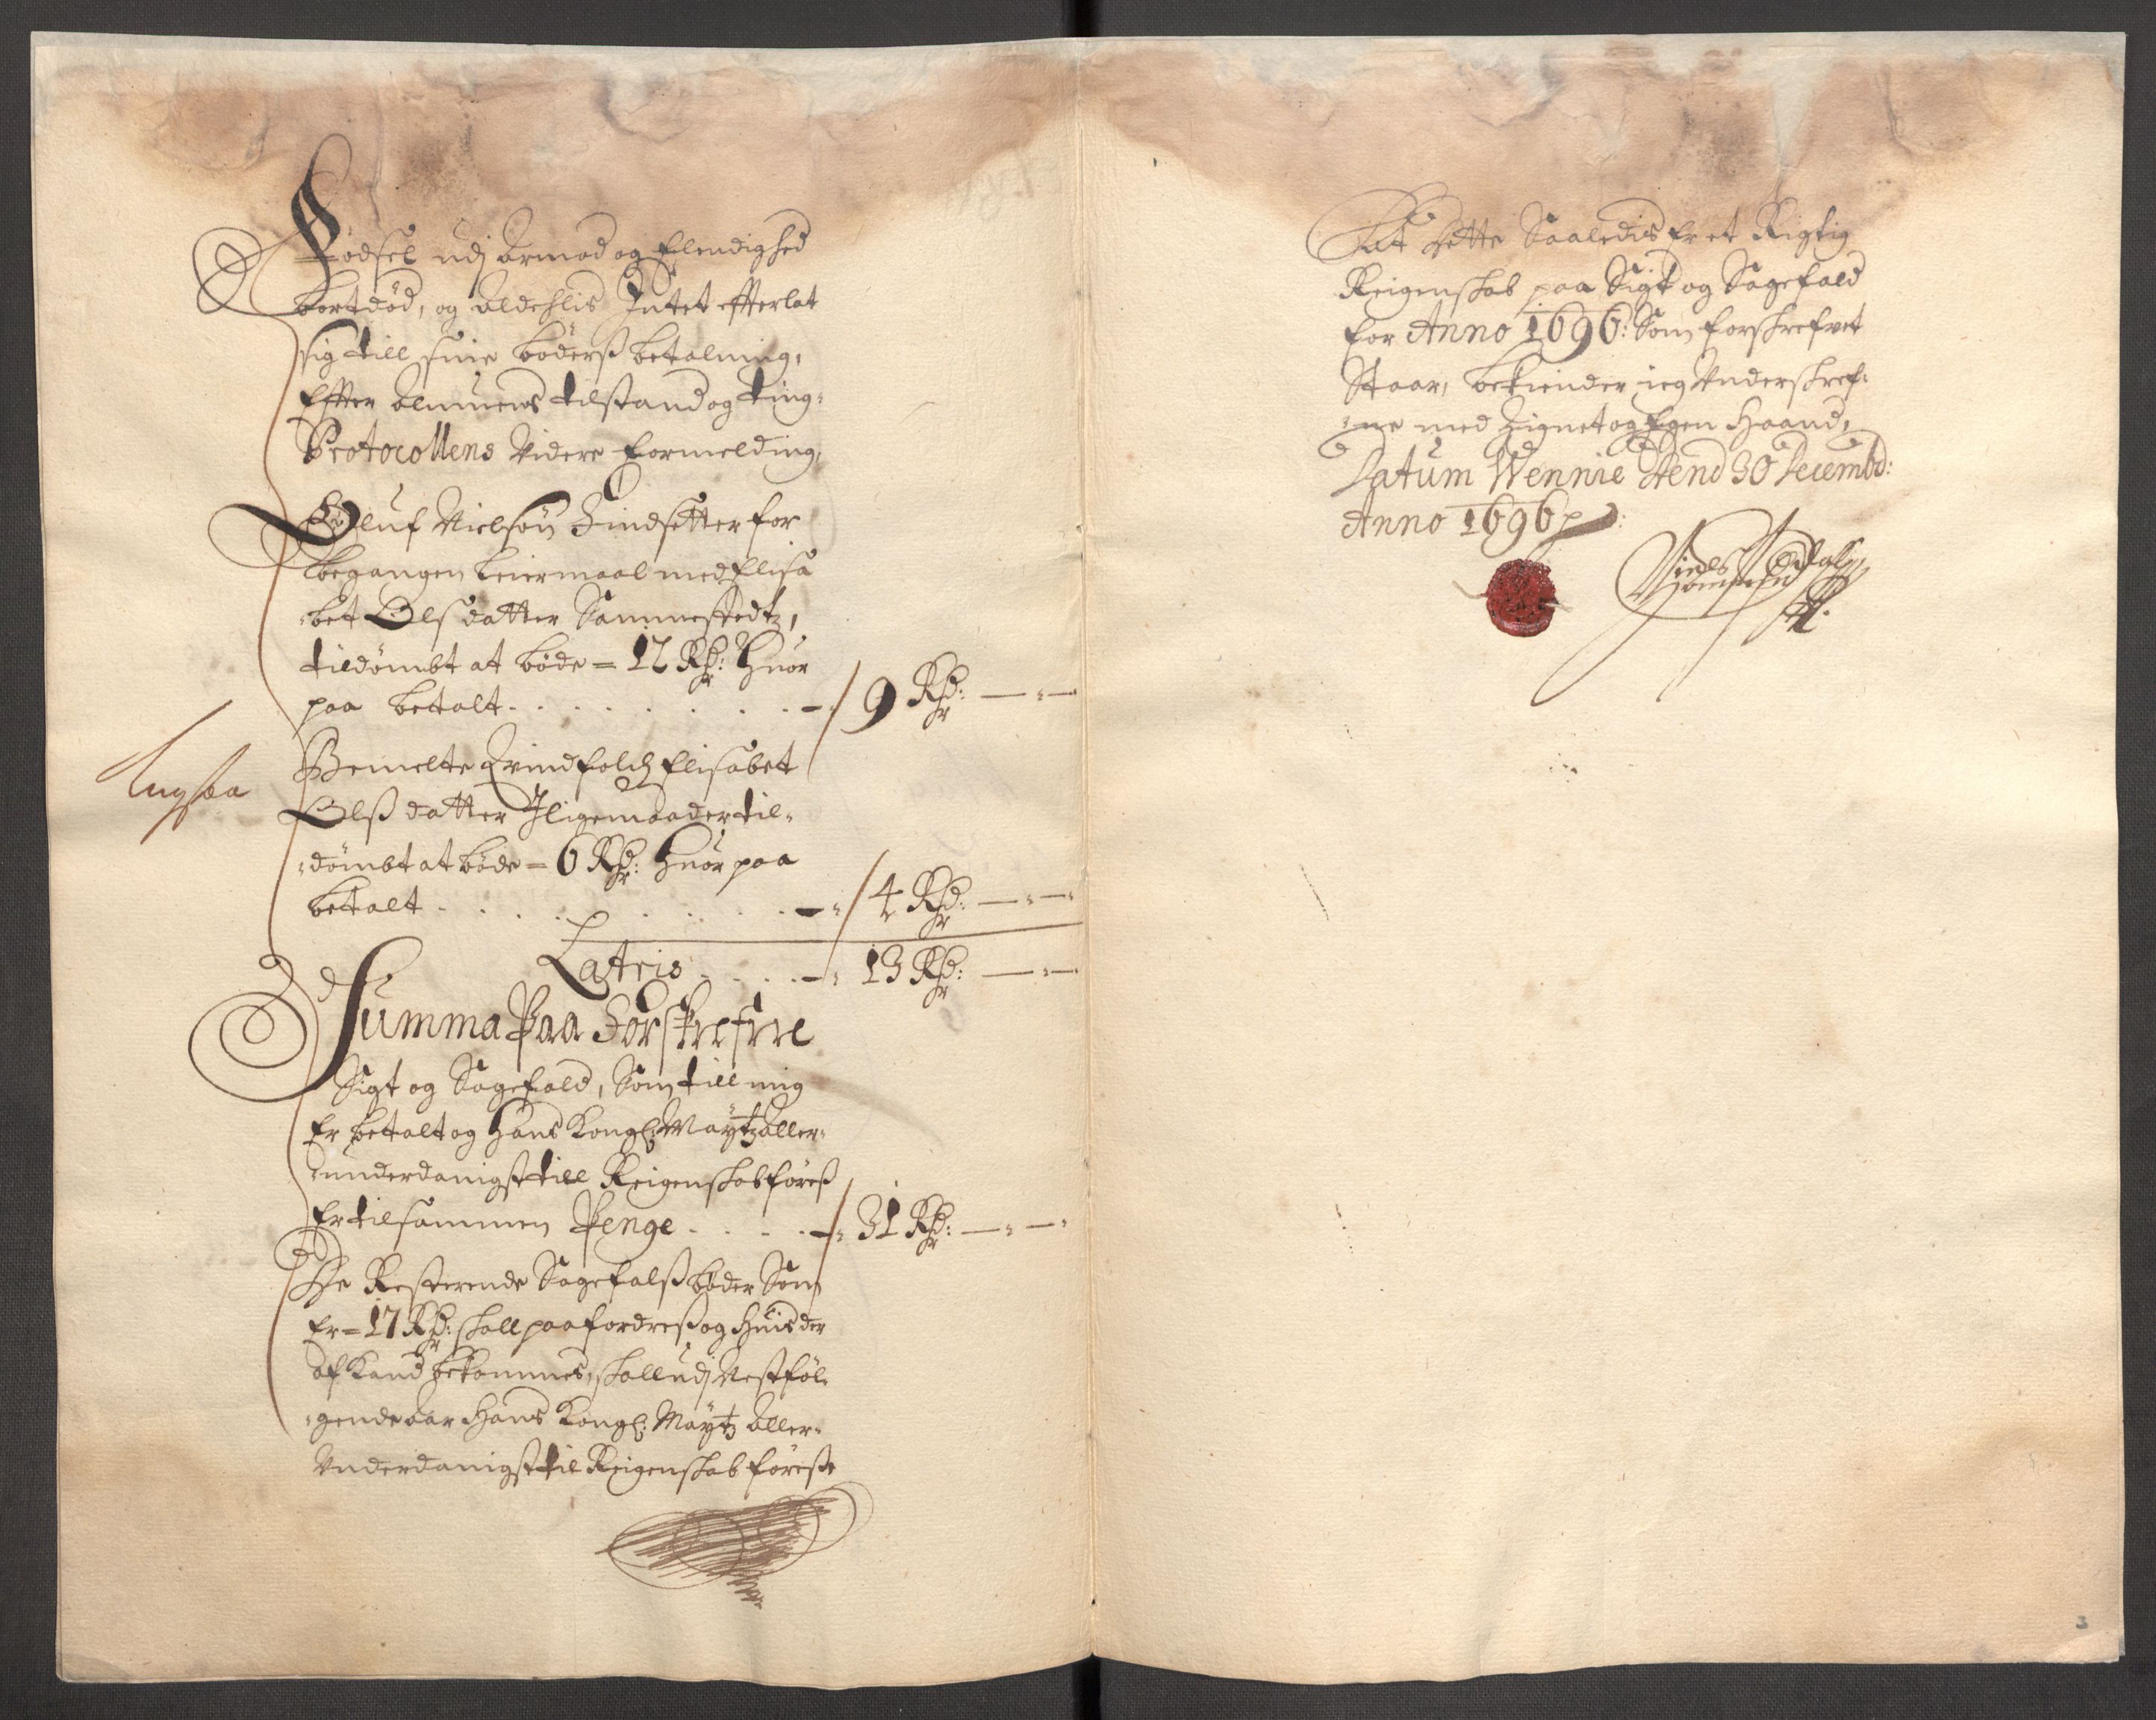 Fødsel udj Armod og Elendighed
bortdød, og aldehlis Intet effterlat
sig till sine bøderß betalning,
Effter Almuens tilstand og Ting-
Protocollens Videre formelding,
Oluf Nielsøn Findsetter for
begangen Leiermaal med Elisa
bet Olsdatter Sammestedtz,
tildømbt at bøde = 12 Rdr: Huor
paa betalt . . . . . . . . . 9 Rdr: — : —
Bemelte Qvindfolch Elisabet
Olßdatter Iligemaader til-
dømbt at bøde = 6 Rdr: Huor paa
betalt . . . . . . . . . 4 Rdr: — : —
Lateris . . . . 13 Rdr: — : —
Summa Paa Forskrefne
Sigt og Sagefald, Som till mig
Er betalt og Hans Kongl: Maytz aller-
underdanigst till Reigenskab føreß
Er tilsammen Penge . . . . 31 Rdr: — : —
De Resterende Sagefalß bøder Som
Er = 17 Rdr: skall paafordreß og huis der
af Kand bekommes, skall udj Nestføl-
gende Aar Hans Kongl: Maytz Aller-
Underdanigst til Reigenskab føreß
At dette Saaledis Er et Rigtig
Reigenskab paa Sigt og Sagefald
for Anno 1696: Som forskrefvet
Staar, bekiender ieg Underskref-
ne med Zignet og Egen Haand,
Datum Wennie Dend 30 Decembd:
Anno 1696